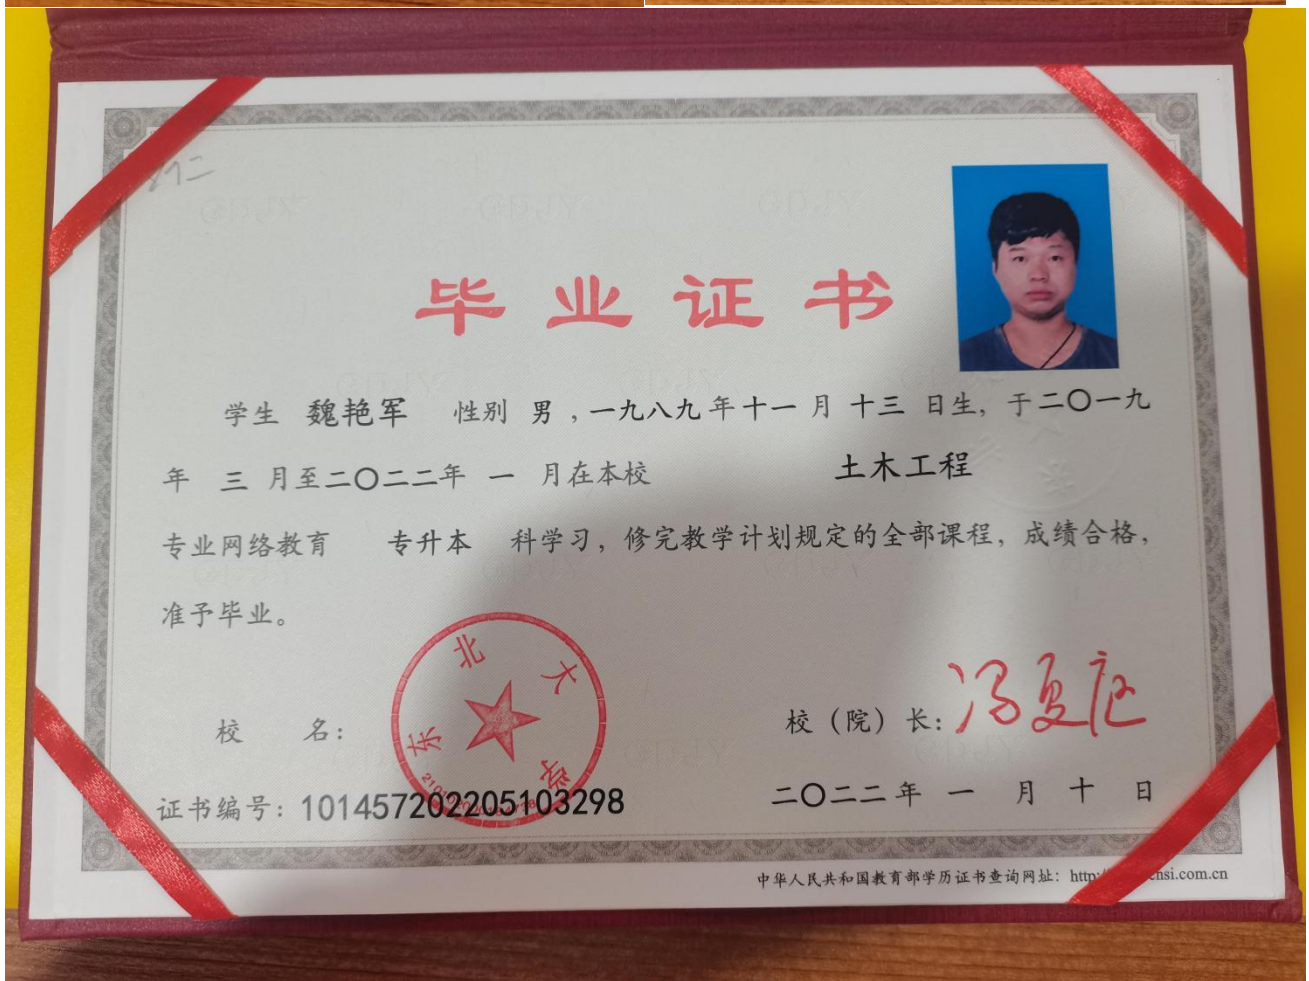 毕业证书
学生 魏艳军 性别 男 ,一九八九年十一月十三日生,于二〇一九
年 三 月至二〇二二年 一 月在本校 土木工程
专业网络教育 专升本 科学习,修完教学计划规定的全部课程,成绩合格,
准予毕业。
东北大学
校 名: 校(院)长:冯夏庭
证书编号:101457202205103298 二〇二二年 一 月 十 日
中华人民共和国教育部学历证书查询网址:http:/
hsi.com.cn